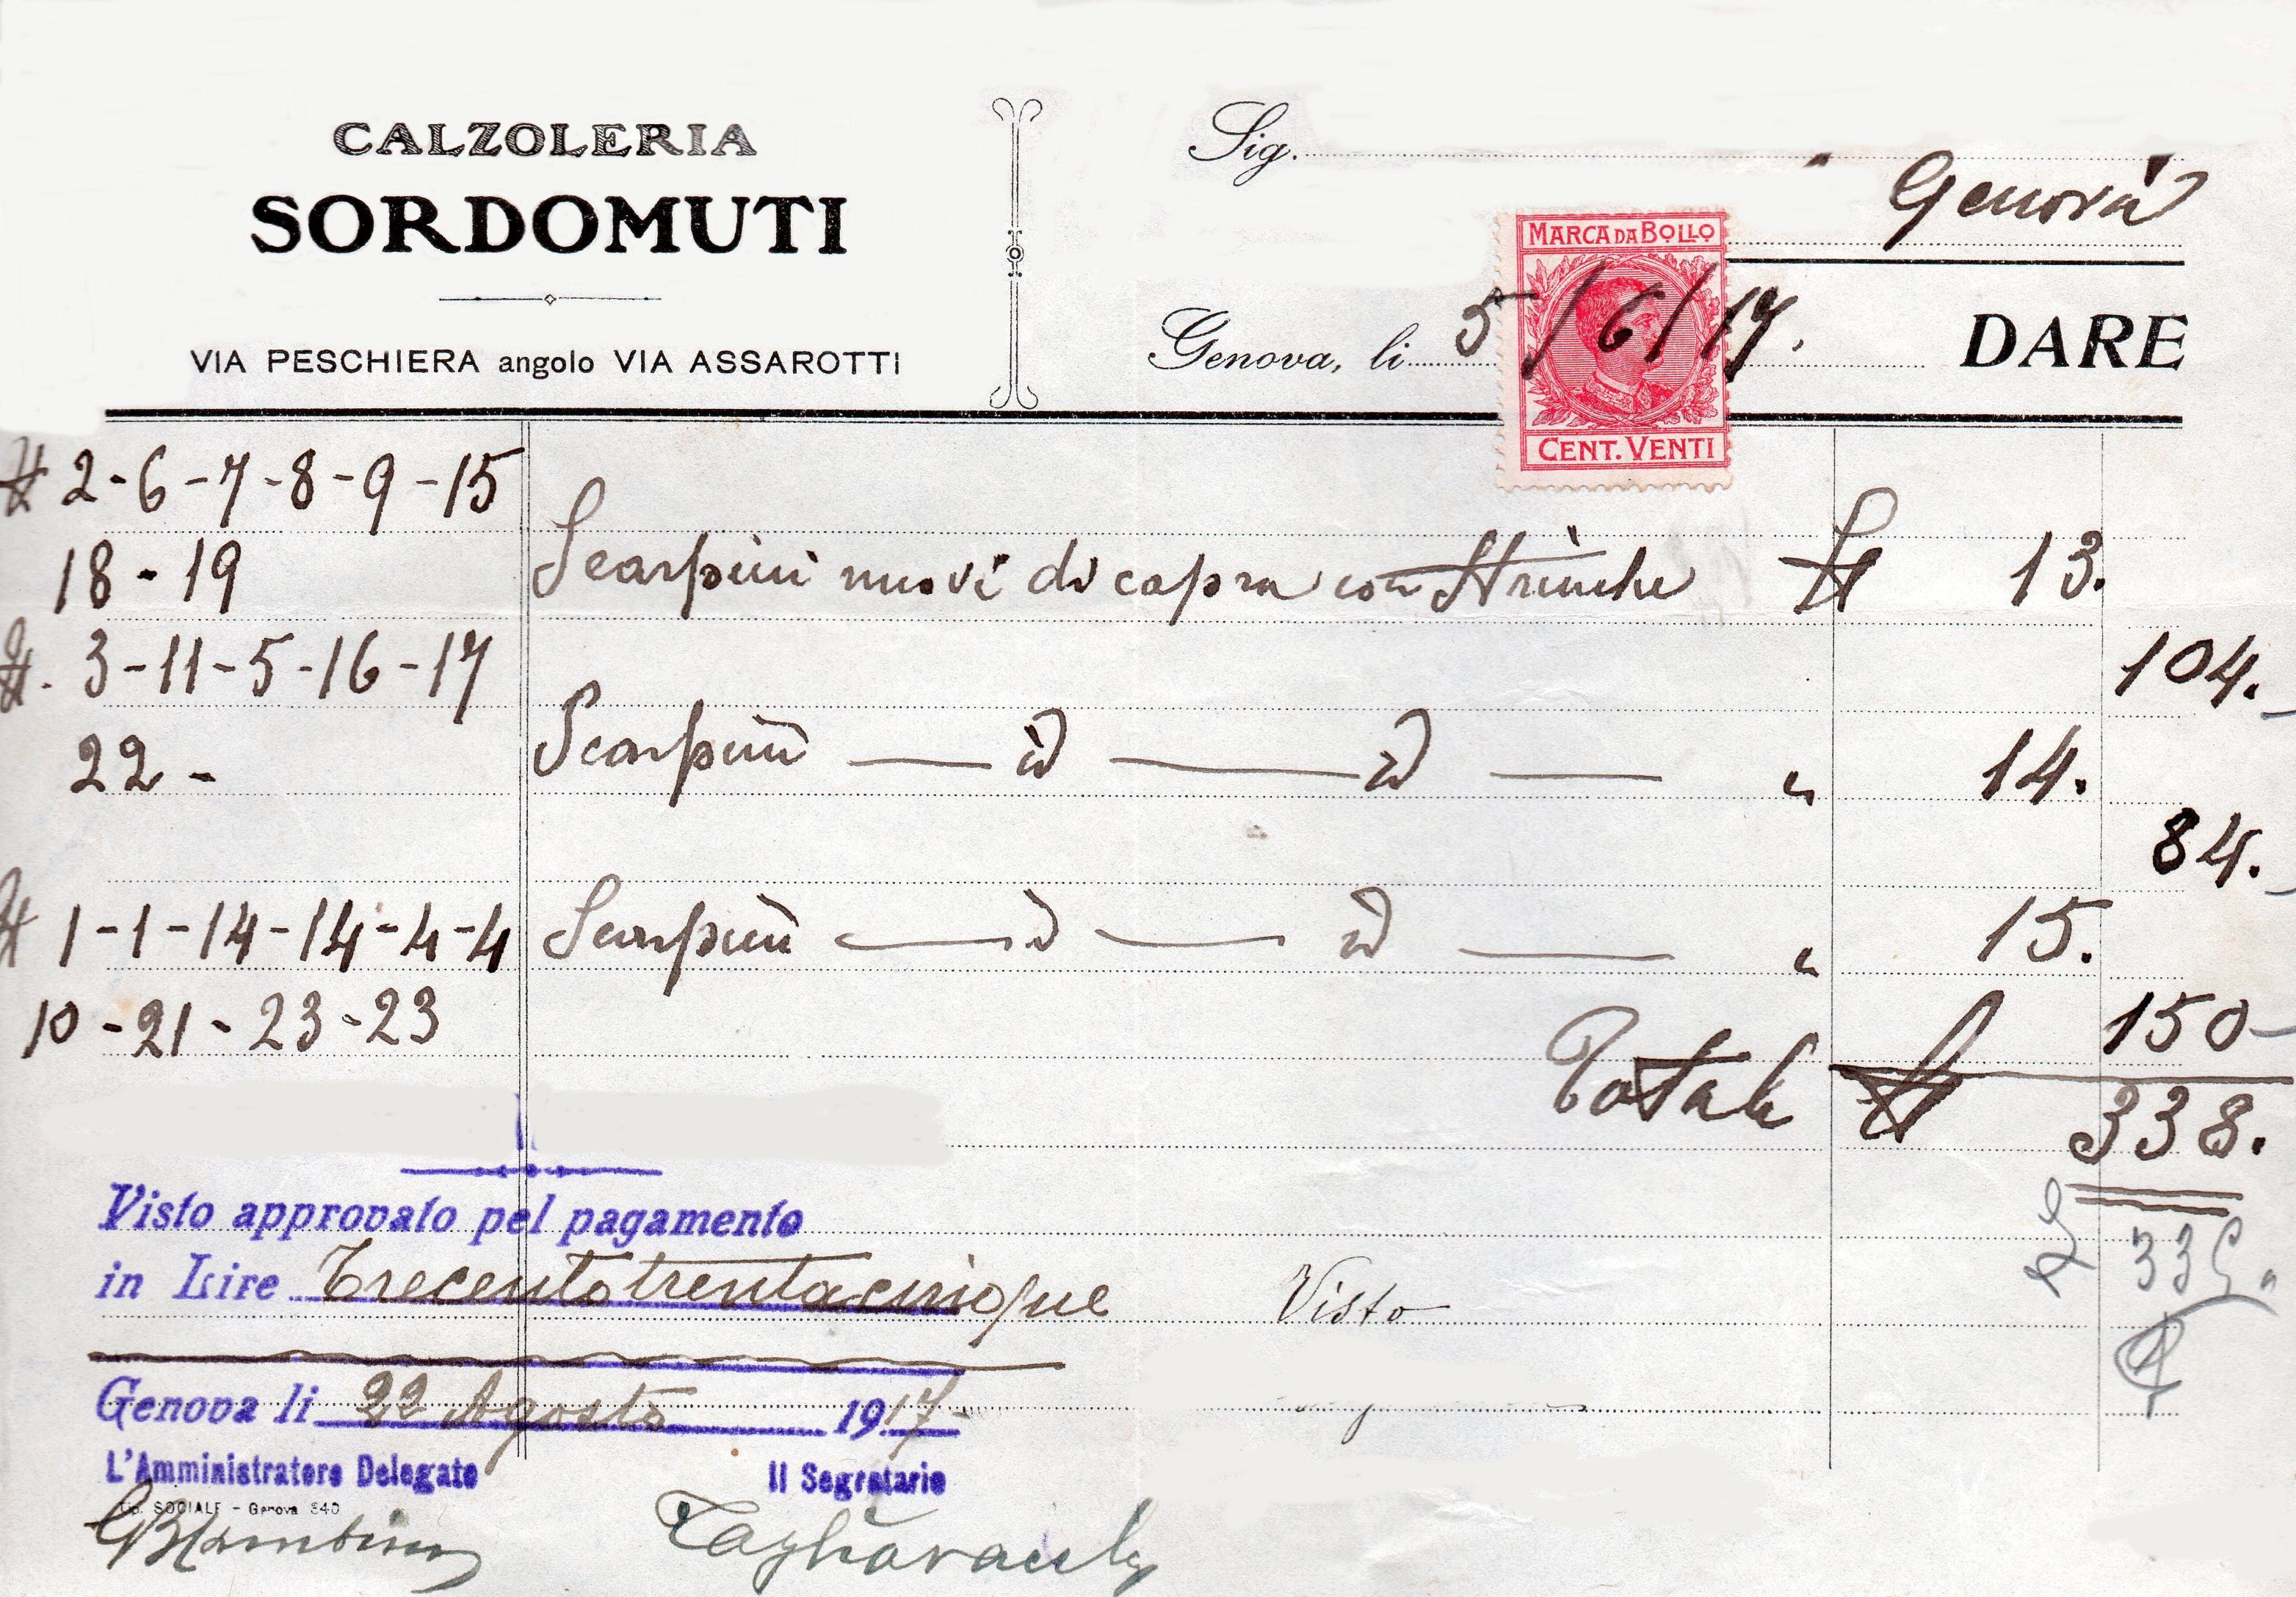 CALZOLERIA
SORDOMUTI
VIA PESCHIERA angolo VIA ASSAROTTI
Sig.
Genova
MARCA DA BOLLO
Genova, li 5/6/17.
DARE
CENT. VENTI
2-6-7-8-9-15
18-19 Scarpini nuovi di capra con Strinche 13.
3-11-5-16-17 104.
22- Scarpini — id — id — " 14.
84.
1-1-14-14-4-4 Scarpini — id — id — " 15.
10-21-23-23 150-
Totale 338.
Visto approvato pel pagamento
335
in Lire Trecentotrentacinque
Visto
Genova li 22 Agosto 1917-
L'Amministratore Delegato Il Segretario
Tip. SOCIALE - Genova 340